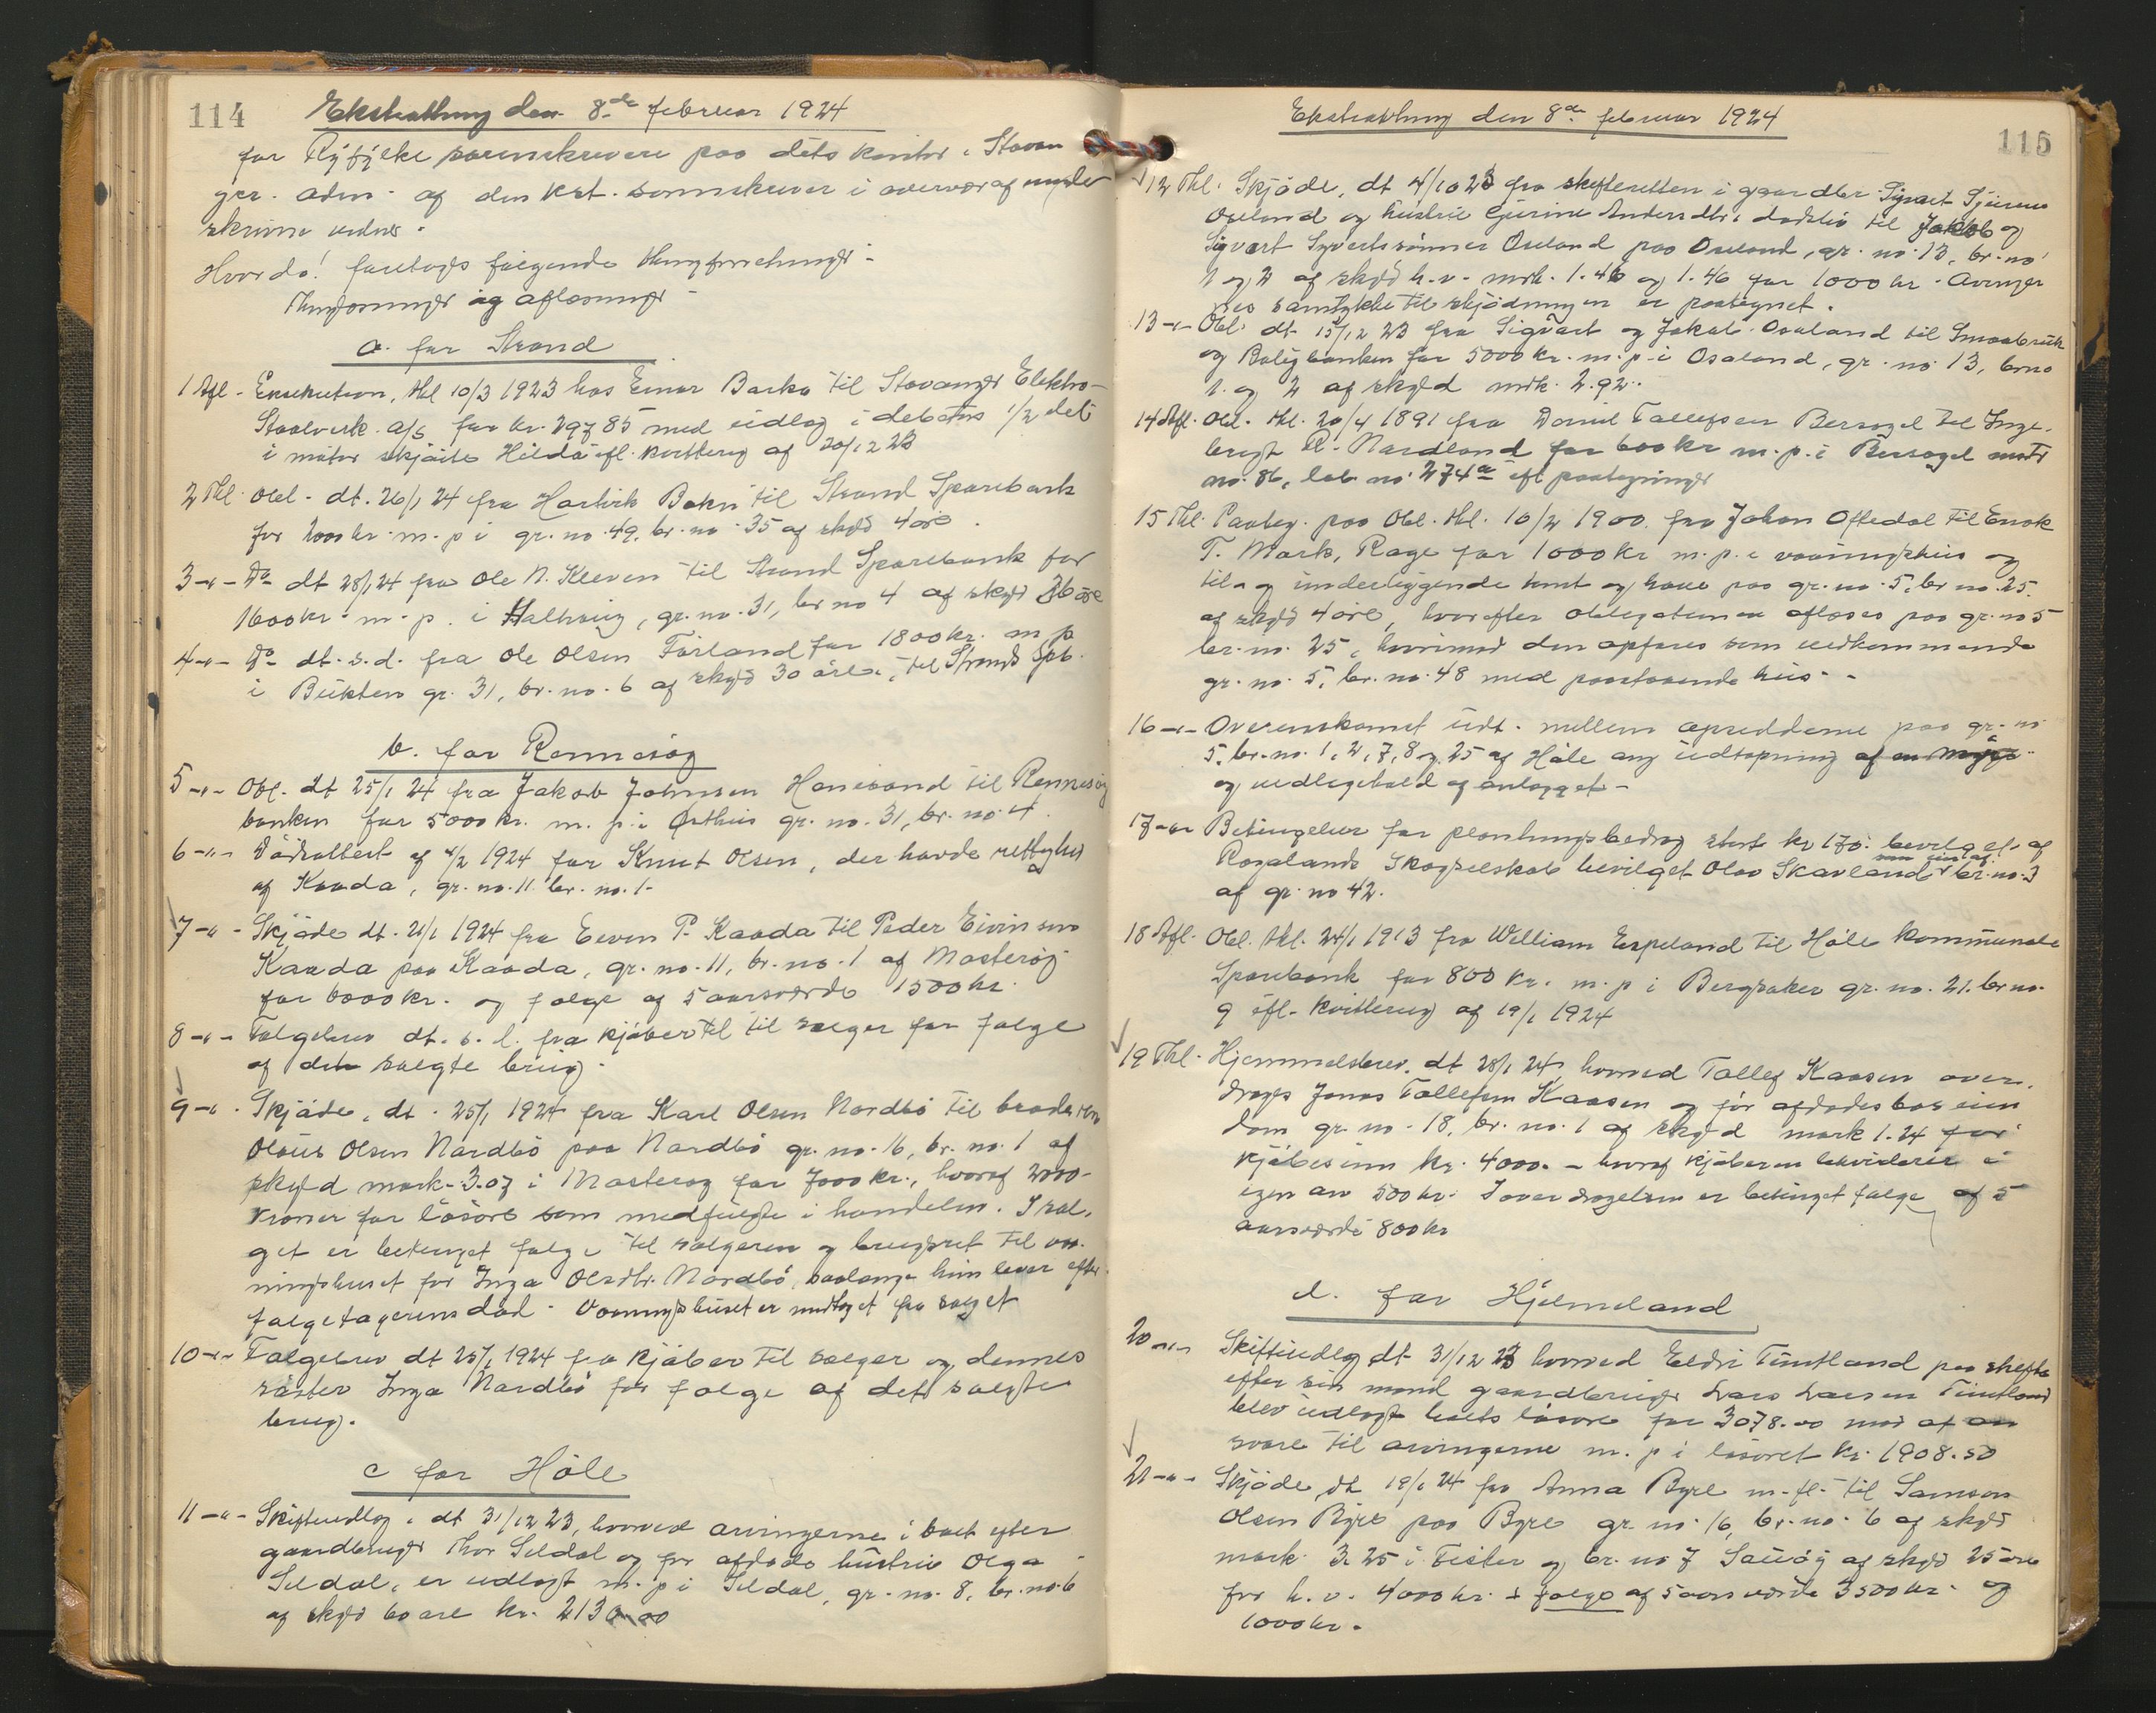 114 Ekstratthing den 8de februar 1924
for Ryfylke sorenskriveri paa dets kontor i Stavan
ger. adm. af den kst. sorenskriver i overvær af under
skrivne vidner.
Hvor da! foretoges følgende thingforretninger:
Thinglæsninger og aflæsninger
a. for Strand
1 Afl. Eksekution, thl 10/3 1923 hos Einar Barka til Stavanger Elektro-
Staalverk a/s for kr. 297 85 med udlæg i debitors 1/2 del
i motor skjøite Hilda ifl. kvittering af 20/12 23
2 Thl. Obl. dt. 26/1 24 fra Hartvik Bokn til Strand Sparebank
for 2000 kr. m. p. i gr. no. 49, br. no. 35 af skyld 4 øre.
3 -"- Do dt 28/1 24 fra Ole N. Kleven til Strand Sparebank for
1600 kr. m. p. i Halhaug, gr. no. 31, br no 4 af skyld 36 øre
4 -"- Do dt. s. d. fra Ole Olsen Førland for 1800 kr. m p
i Bukten gr. 31, br. no. 6 af skyld 30 øre, til Strand Spb.
b. for Rennesøy
5 -"- Obl. dt 25/1 24 fra Jakob Johnsen Hanesand til Rennesøy
banken for 5000 kr. m. p. i Østhus gr. no. 31, br. no. 4.
6 -"- Dødsattest af 4/2 1924 for Knut Olsen, der havde rettighed
af Kaada, gr. no. 11 br. no. 1.
7 -"- Skjøde dt. 21/1 1924 fra Eeven P. Kaada til Peder Eivinsen
Kaada paa Kaada, gr. no. 11, br. no. 1 af Mosterøy
for 6000 kr. og følge af 5 aarsværdi 1500 kr.
8 -"- Følgebrev dt. s. d. fra kjøber til til sælger for følge
af det solgte brug.
9 -"- Skjøde, dt. 25/1 1924 fra Karl Olsen Nordbø til broderen
Olaus Olsen Nordbø paa Nordbø gr. no. 16, br. no. 1 af
skyld mark. 3.07 i Mosterøy for 7000 kr., hvoraf 2000-
kroner for løsøre som medfulgte i handelen. I sal-
get er betinget følge til sælgeren og brugsret til vaa-
ningshuset for Inga Olsdtr. Nordbø, saalænge hun lever efter
følgetagerens død. Vaaningshuset er undtaget fra salget
10 -"- Følgebrev dt 25/1 1924 fra kjøber til sælger og dennes
søster Inga Nordbø for følge af det solgte
brug.
c for Høle
11 -"- Skifteudlæg, dt 31/12 23, hvorved arvingerne i boet efter
gaardbruger Thor Seldal og før afdøde hustru Olga
Seldal, er udlagt m. p. i Seldal, gr. no. 8, br. no. 6
af skyld 60 øre kr. 2130.00
Ekstratthing den 8de februar 1924
115
12 Thl. Skjøde, dt 4/10 23 fra skifteretten i gaardbr. Sigvart
Oseland og hustru Gurine Andersdtr.s dødsbo til Jakob og
Sigvart Syvertssønner Oseland paa Oseland, gr. no. 13, br. no
1 og 2 af skyld h. v. mrk. 1.46 og 1.46 for 1000 kr. Arvinger
nes samtykke til skjødningen er paategnet.
13 -"- Obl. dt 15/12 23 fra Sigvart og Jakob Osaland til Smaabruk
og Boligbanken for 5000 kr. m. p. i Osaland, gr. no. 13, br no
1 og 2 af skyld mrk. 2.92.
14 Afl. Obl. thl. 20/4 1891 fra Daniel Tollefsen Bersagel til Inge-
brigt R. Nordland for 600 kr m. p. i Bersagel matr
no. 86, løb. no. 274a ifl paategninger
15 Thl. Paateg. paa Obl. thl. 10/2 1900 fra Johan Oftedal til Enok
T. Mark, Rage for 1000 kr m. p. i vaaningshus og
til og underliggende tomt og have paa gr. no. 5, br no. 25.
af skyld 4 øre, hvorefter obligationen aflæses paa gr. no 5
br. no. 25, hvorimod den opføres som vedkommende
gr. no. 5, br. no. 48 med paastaaende hus.
16 -"- Overenskomst udt. mellem opsidderne paa gr. no
5, br. no. 1, 2, 7, 8 og 25 af Høle ang udtapning af en myr
og vedligehold af anlægget.
17 -"- Betingelser for plantningsbidrag stort kr 175. bevilget af
Rogalands Skogselskab bevilget Olav Skavland som eier af br. no. 3
af gr. no 42.
18 Afl. Obl. thl. 24/1 1913 fra William Espeland til Høle kommunale
Sparebank for 800 kr. m. p i Bergsaker gr. no. 21. br no.
9 ifl. kvittering af 19/1 1924
19 Thl. Hjemmelsbrev, dt 28/1 24, hvorved Tollef Kaasen over-
drages Jonas Tollefsen Kaasen og før afdødes bos eien
dom gr. no. 18, br. no. 1 af skyld mark 1.24 for
kjøbesum kr. 4000. - hvoraf kjøberen likviderer i
egen arv 500 kr. I overdragelsen er betinget følge af 5
aarsværdi 800 kr
d. for Hjelmeland
20 -"- Skifteudlæg dt 31/12 23 hvorved Eldri Tuntland paa skifte
efter sin mand gaardbruger Lars Larsen Tuntland
blev udlagt boets løsøre for 3078.00 mod at an
svare til arvingerne m. p i løsøret kr. 1908.50
21 -"- Skjøde, dt 19/1 24 fra Anna Byre m. fl. til Samson
Olsen Byre paa Byre gr. no. 16, br. no. 6 af skyld
mark. 3.25 i Fister og br. no 7 Sauøy af skyld 25 øre
for h. v. 4000 kr. + følge af 5 aarsværdi 3500 kr. og
1000 kr.